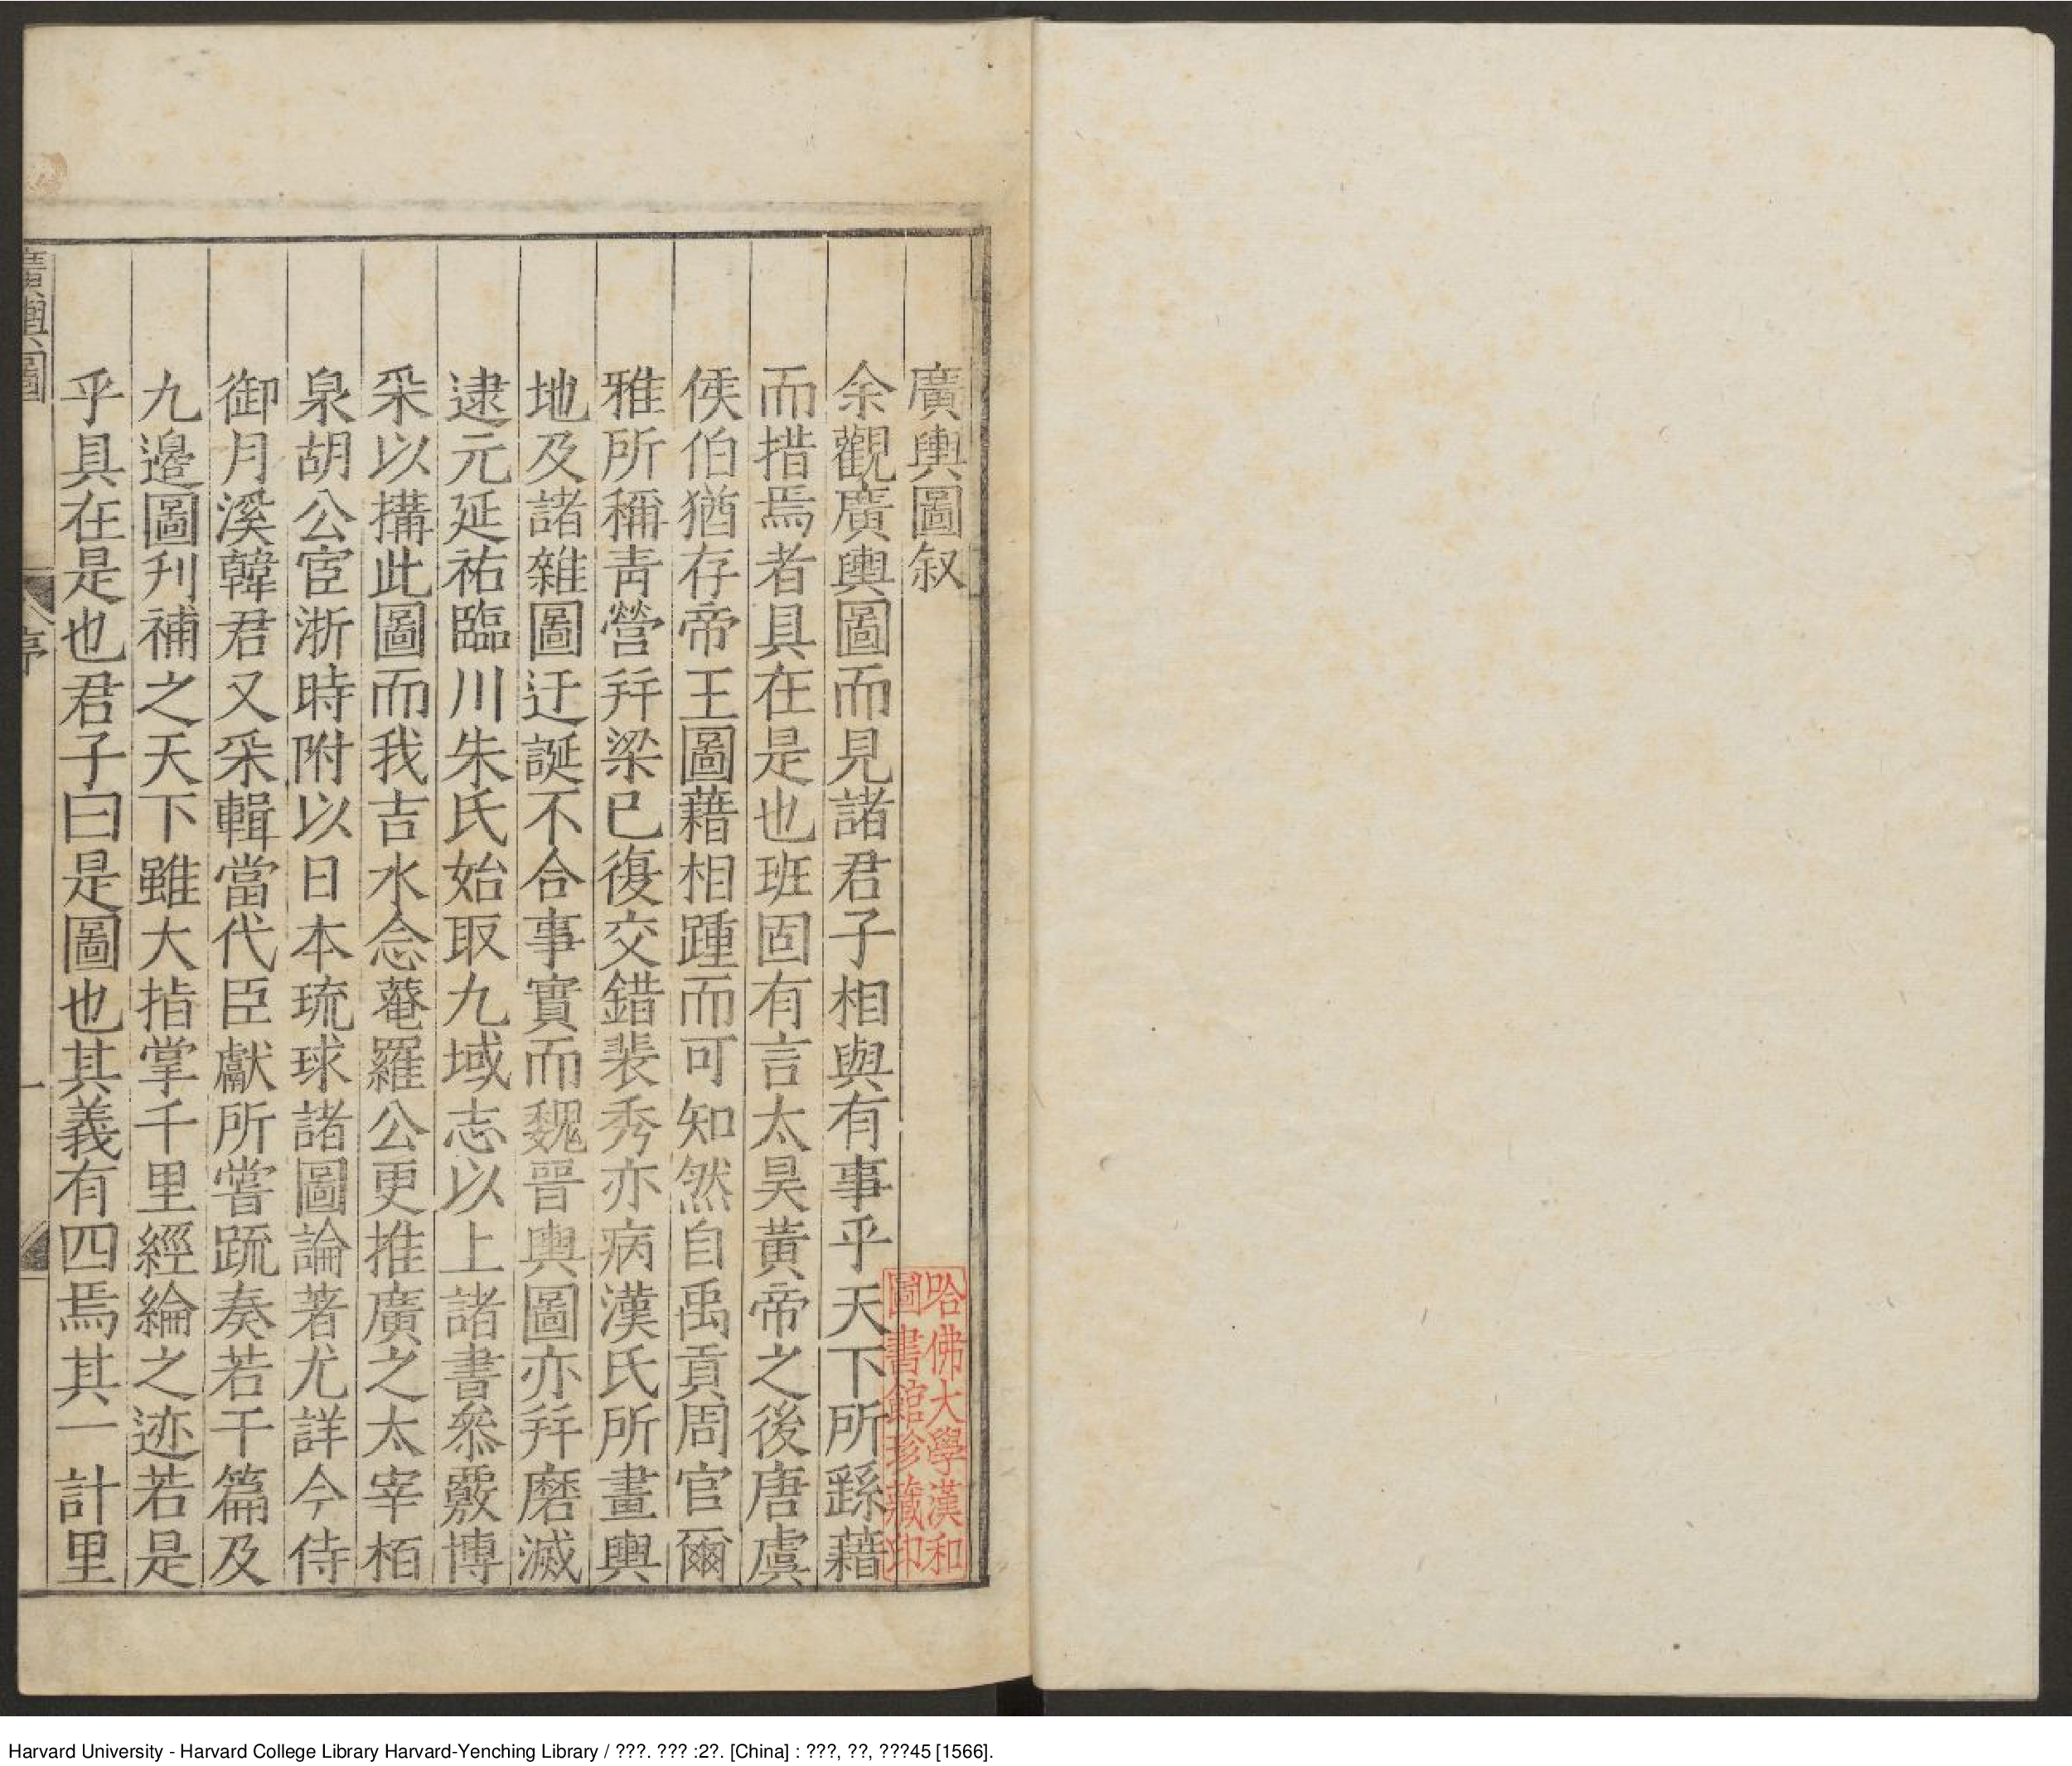 廣輿圖叙
余觀廣輿圖而見諸君子相與有事乎天下所繇藉
而措焉者具在是也班固有言太昊黃帝之後唐虞
侯伯猶存帝王圖藉相踵而可知然自禹貢周官爾
雅所稱青營并梁已復交錯裴秀亦病漢氏所畫輿
地及諸雜圖迂誕不合事實而魏晉輿圖亦并磨滅
逮元延祐臨川朱氏始取九域志以上諸書叅覈博
采以搆此圖而我吉水念菴羅公更推廣之太宰栢
泉胡公宦浙時附以日本琉球諸圖論著尤詳今侍
御月溪韓君又采輯當代臣獻所嘗疏奏若干篇及
九邊圖刋補之天下雖大指掌千里經綸之迹若是
乎具在是也君子曰是圖也其義有四焉其一計里
廣輿圖
序
一
哈佛大學漢和
圖書館珍藏印
Harvard University - Harvard College Library Harvard-Yenching Library / ???. ??? :2?. [China] : ???, ??, ???45 [1566].